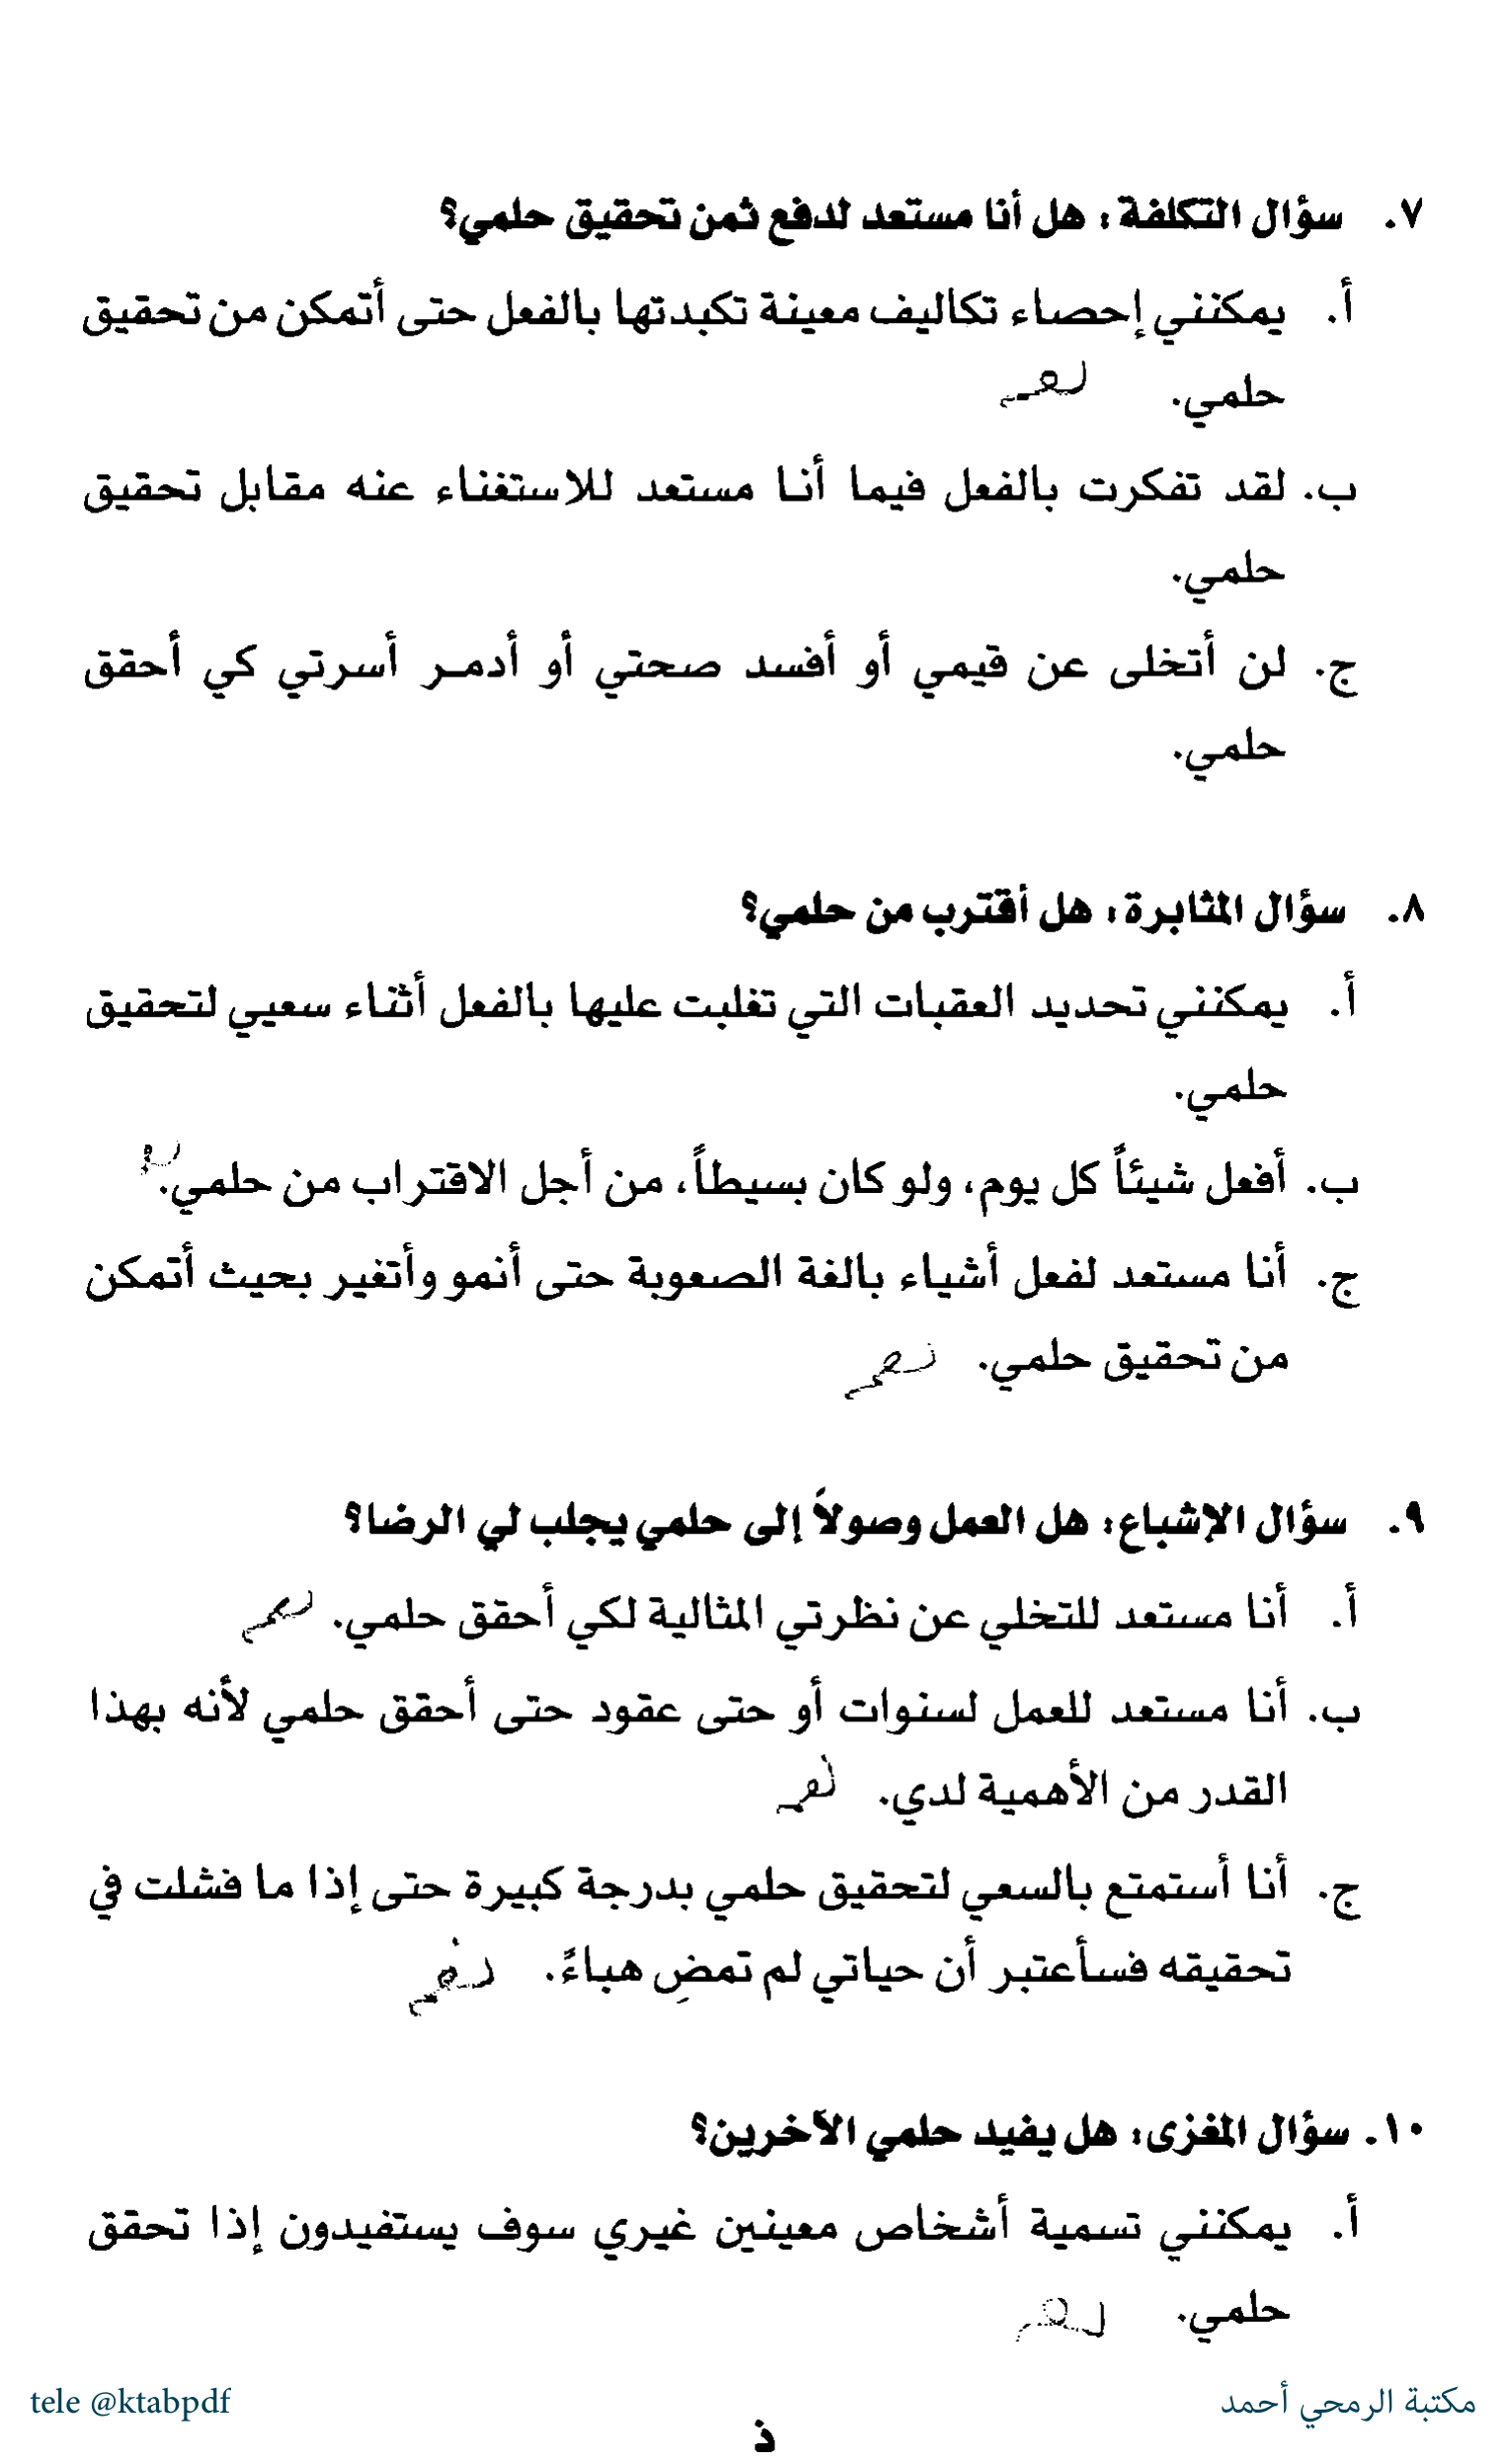 ٧. سؤال التكلفة: هل أنا مستعد لدفع ثمن تحقيق حلمي؟
أ. يمكنني إحصاء تكاليف معينة تكبدتها بالفعل حتى أتمكن من تحقيق
حلمي. نعم
ب. لقد تفكرت بالفعل فيما أنا مستعد للاستغناء عنه مقابل تحقيق
حلمي.
ج. لن أتخلى عن قيمي أو أفسد صحتي أو أدمر أسرتي كي أحقق
حلمي.
٨. سؤال المثابرة: هل أقترب من حلمي؟
أ. يمكنني تحديد العقبات التي تغلبت عليها بالفعل أثناء سعيي لتحقيق
حلمي.
ب. أفعل شيئاً كل يوم، ولو كان بسيطاً، من أجل الاقتراب من حلمي.
ج. أنا مستعد لفعل أشياء بالغة الصعوبة حتى أنمو وأتغير بحيث أتمكن
من تحقيق حلمي. نعم
٩. سؤال الإشباع: هل العمل وصولاً إلى حلمي يجلب لي الرضا؟
أ. أنا مستعد للتخلي عن نظرتي المثالية لكي أحقق حلمي. نعم
ب. أنا مستعد للعمل لسنوات أو حتى عقود حتى أحقق حلمي لأنه بهذا
القدر من الأهمية لدي. نعم
ج. أنا أستمتع بالسعي لتحقيق حلمي بدرجة كبيرة حتى إذا ما فشلت في
تحقيقه فسأعتبر أن حياتي لم تمضِ هباءً. نعم
١٠. سؤال المغزى: هل يفيد حلمي الآخرين؟
أ. يمكنني تسمية أشخاص معينين غيري سوف يستفيدون إذا تحقق
حلمي. نعم
مكتبة الرمحي أحمد tele @ktabpdf
ذ